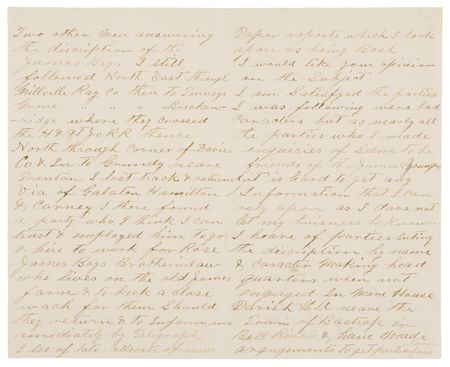 Two other men answering
the discription of the
James Boys I still
followed North East through
Millville Ray Co then to Tinneys
Grove " " " Brecken-
ridge where they crossed
the H & St Jo RR thence
North through Corner of Davies
Co & In to Grundy neare
Trenton I lost track & returned
Via of Galaton Hamilton
& Carney I there found
a party who I think I can
trust & employed him to go
& hire to work for Rose
James Boys Brotherinlaw
who lives on the old James
farm & to keek a close
wach for them Should
they return & to Inform me
amediately by Telegraph
I See of late allsorts of news
Paper reports which I look
apon as being Bosh
I would like your opinion
on the Subject
I am Satisfyed the parties
I was following were bad
Caracters but as nearly all
the parties who I made
enquiries of Seeme to be
friends of the James & Youngers
it is hard to get any
Information that I can
rely apon as I dare not
let my buisness be Known
I heare of parties Suting
the discription by name
& Caracter Making head
quarters when not
engaged In
Parish Lou neare the
Town of Bastrop on
& have made
arrangements to get particulars